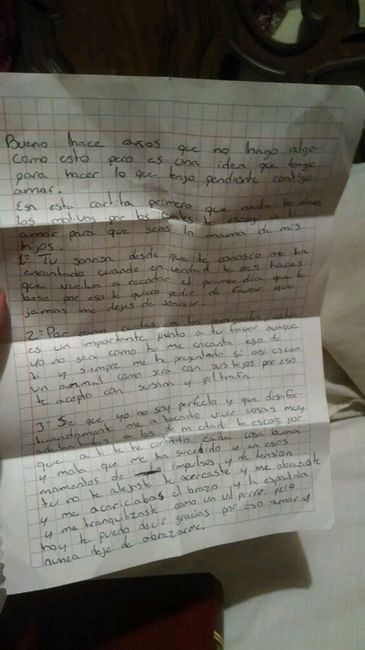 Bueno hace años que no hago algo
como esto pero es una idea que tengo
para hacer lo que tengo pendiente contigo
amor.
En esta cartita primero que nada te
los motivos por los te escogi a ti
amor para que seas la mama de mis
hijos.
1- Tu sonrisa desde que te conosco me ha
encantado cuando en verdad te ries haces
que vuelva a recordar el primer dia que te
bese por eso te quiero pedir de favor que
jamas me dejes de sonreir.
2- Por
es un importante punto a tu favor aunque
yo no sea como tu me encanta eso de
ti y siempre me he preguntado si asi es con
un animal como sera con sus hijos por eso
te acepto con y piltrafa
3- Se que yo no soy perfecto y que desafor-
tunadamente me a tocado vivir cosas muy
a los de mi edad te escogi por
que a ti te he contado cada cosa buena
y mala que me ha sucedido y en esos
momentos de impulsos y de tension
tu no te alejaste te acercaste y me abrazaste
y me acariciabas el brazo y la espalda
y me tranquilizaste como un vil perro pero
hoy te puedo decir gracias por eso amor y
nunca dejes de abrazarme.